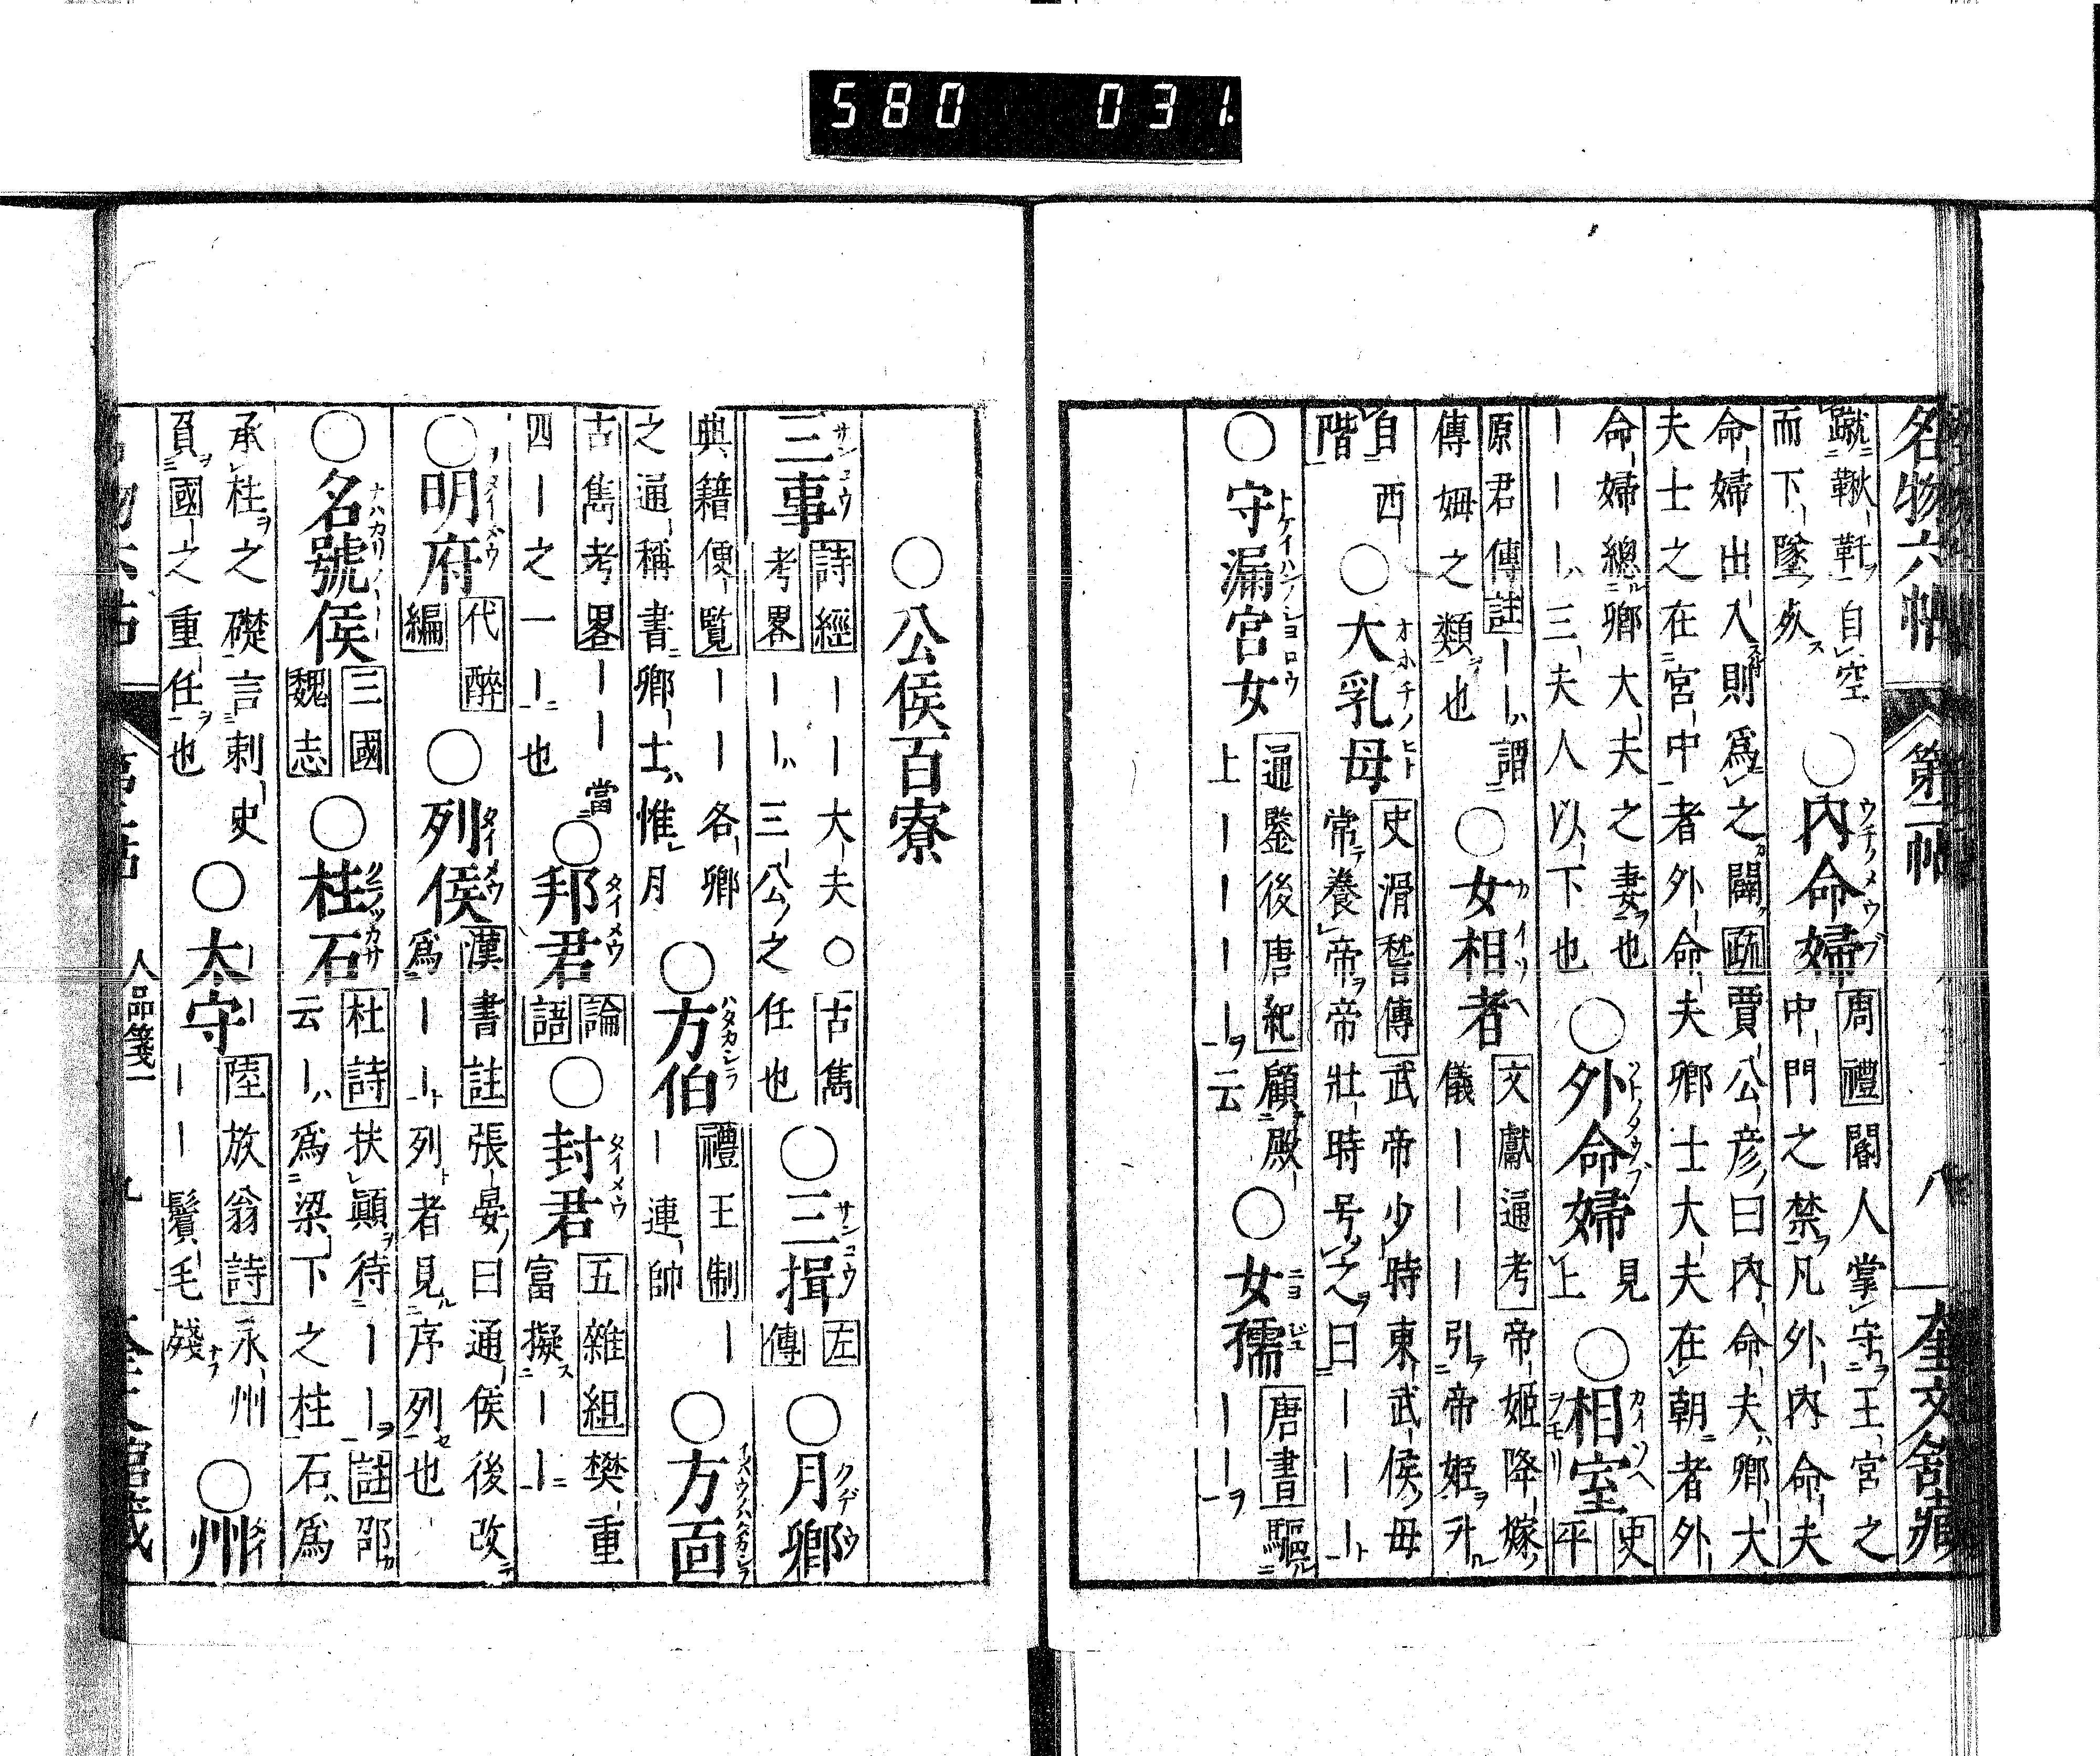 580 031
名物六帖 第二帖 八 奎文舘藏
蹴鞦韆自空
而下墜死
○內命婦 ウチノメウブ
周禮閽人掌守王宮之
中門之禁凡外內命夫
命婦出入則爲之闢疏賈公彦曰內命夫卿大
夫士之在宮中者外命夫卿士大夫在朝者外
命婦總卿大夫之妻也
ーーー三夫人以下也
○外命婦
見
上
○相室
史
平
原君傳註ーー謂
傅姆之類也
○女相者
文獻通考帝姬降嫁
儀ーーー引帝姬升
自西
階
○大乳母 オホチノヒト
史滑稽傳武帝少時東武侯母
常養帝帝壯時号之曰ーーー
○守漏宮女
通鑒後唐紀顧殿
上ーーーー云
○女孺
唐書驅
ーー
○公侯百寮
三事 サンコウ
詩經ーー大夫○古雋
考畧ーー三公之任也
○三揖 サンコウ
左
傳
○月卿
典籍便覽ーー各卿
之通稱書卿士惟月
○方伯 ハタカシラ
禮王制ー
ー連帥
○方面
古雋考畧ーー當
四ー之一ー也
○邦君 タイメウ
論
語
○封君 タイメウ
五雜組樊重
富擬ーー
○明府
代醉
編
○列侯 タイメウ
漢書註張晏曰通侯後改
爲ーー列者見序列也
○名號侯
三國
魏志
○柱石
杜詩扶顚待ーー註邵
云ー爲梁下之柱石爲
承柱之礎言刺史
負國之重任也
○太守
陸放翁詩永州
ーー鬢毛殘
○州
人品箋一